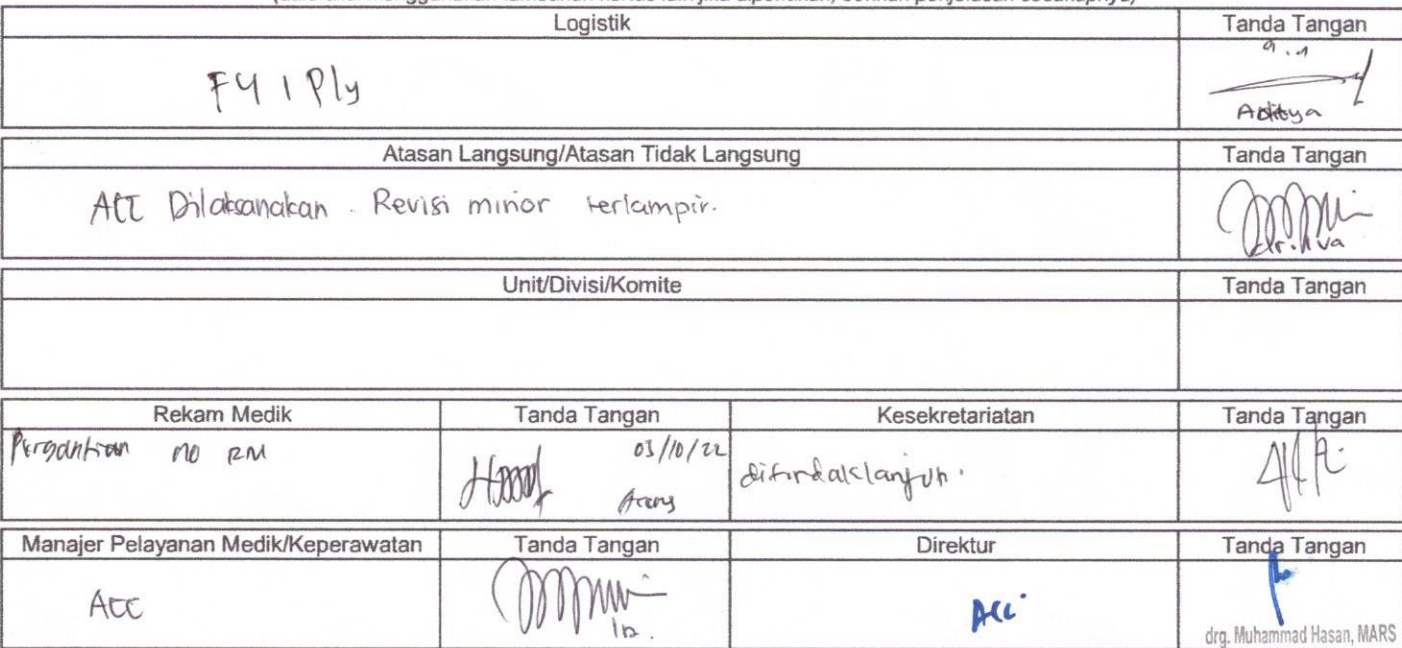 Logistik Tanda Tangan
F4 1 Ply
Aditya
Atasan Langsung/Atasan Tidak Langsung Tanda Tangan
ACC Dilaksanakan. Revisi minor terlampir.
Unit/Divisi/Komite Tanda Tangan
Rekam Medik Tanda Tangan Kesekretariatan Tanda Tangan
Pergantian no RM 03/10/22 ditindaklanjuti.
Manajer Pelayanan Medik/Keperawatan Tanda Tangan Direktur Tanda Tangan
ACC ACC
drg. Muhammad Hasan, MARS